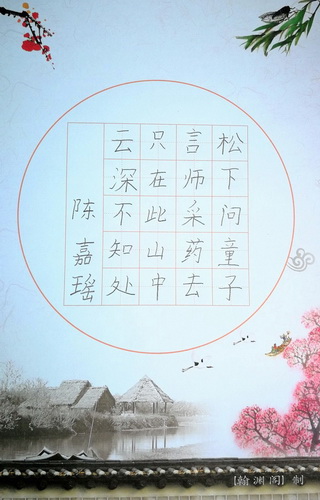 松下问童子
言师采药去
只在此山中
云深不知处
陈嘉瑶
【翰渊阁】制